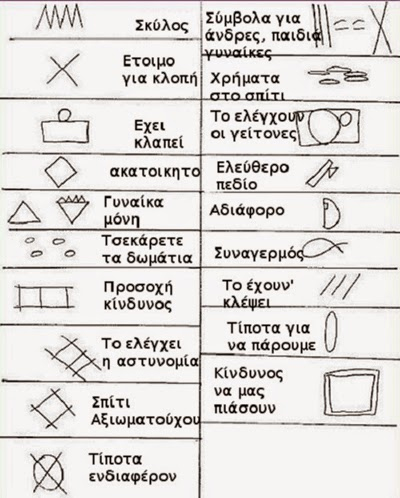 Σκύλος
Ετοιμο
για κλοπή
Εχει
κλαπεί
ακατοικητο
Γυναίκα
μόνη
Τσεκάρετε
τα δωμάτια
Προσοχή
κίνδυνος
Το ελέγχει
η αστυνομία
Σπίτι
Αξιωματούχου
Τίποτα
ενδιαφέρον
Σύμβολα για
άνδρες, παιδιά
γυναίκες
Χρήματα
στο σπίτι
Το ελέγχουν
οι γείτονες
Ελεύθερο
πεδίο
Αδιάφορο
Συναγερμός
Το έχουν'
κλέψει
Τίποτα για
να πάρουμε
Κίνδυνος
να μας
πιάσουν